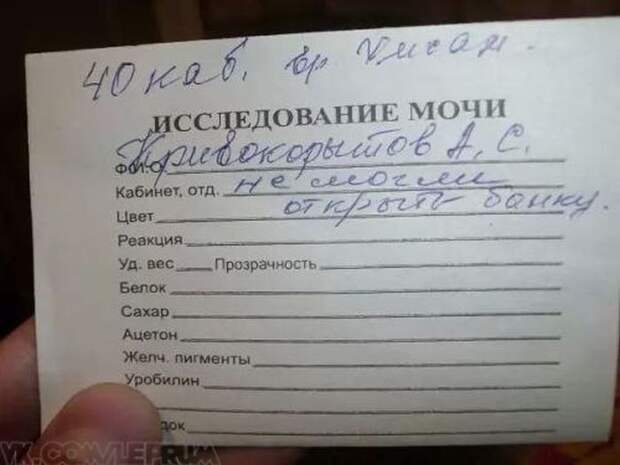 40 каб. вр.
ИССЛЕДОВАНИЕ МОЧИ
Кривокорытов А. С.
Кабинет, отд. не могли
Цвет открыть банку.
Реакция
Уд. вес Прозрачность
Белок
Сахар
Ацетон
Желч. пигменты
Уробилин
VK.COM/LEPRUM